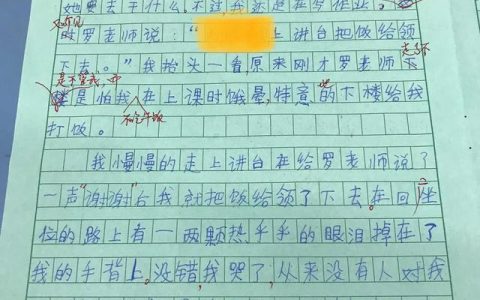 她要去干什么,不过,我还是在写作业。
又听见
时罗老师说:“上讲台把饭给领
走了不
下去。”我抬头一看,原来刚才罗老师下
是不管我,而
楼是怕我在上课时饿晕,特意的下楼给我
不吃午饭
打饭。
我慢慢的走上讲台在给罗老师说了
一声“谢谢”后我就把饭给领了下去。在回坐
位的路上有一两颗热乎乎的眼泪掉在了
我的手背上。没错,我哭了,从来没有人对我